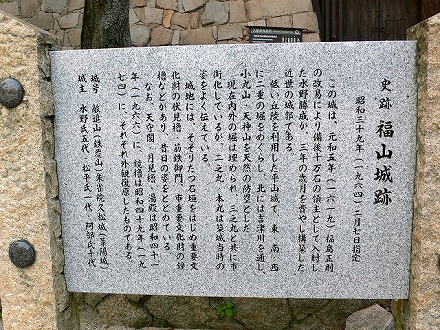 史跡 福山城跡
昭和三十九年(一九六四)二月七日指定
この城は、元和五年(一六一九)福島正則
の改易により備後十万石の領主として入封し
た水野勝成が、三年の歳月を費やし構築した
近世の城郭である。
低い丘陵を利用した平山城で、東 南 西
に二重の堀をめぐらし、北には吉津川を通し
小丸山・天神山を天然の防塁とした。
現在内外の堀は埋められ、三之丸と共に市
街化しているが、二之丸・本丸は築城当時の
姿をよく伝えている。
城地には、そそりたつ石垣をはじめ重要文
化財の伏見櫓・筋鉄御門、市重要文化財の鐘
櫓などがあり、昔日の姿をとどめている。
なお、天守閣・月見櫓・湯殿は昭和四十一
年(一九六六)に、鏡櫓は昭和四十九年(一九
七四)に、それぞれ外観復原したものである。
城号 敵追山(鉄覆山)朱雀院久松城(葦陽城)
城主 水野氏五代、松平氏一代、阿部氏十代